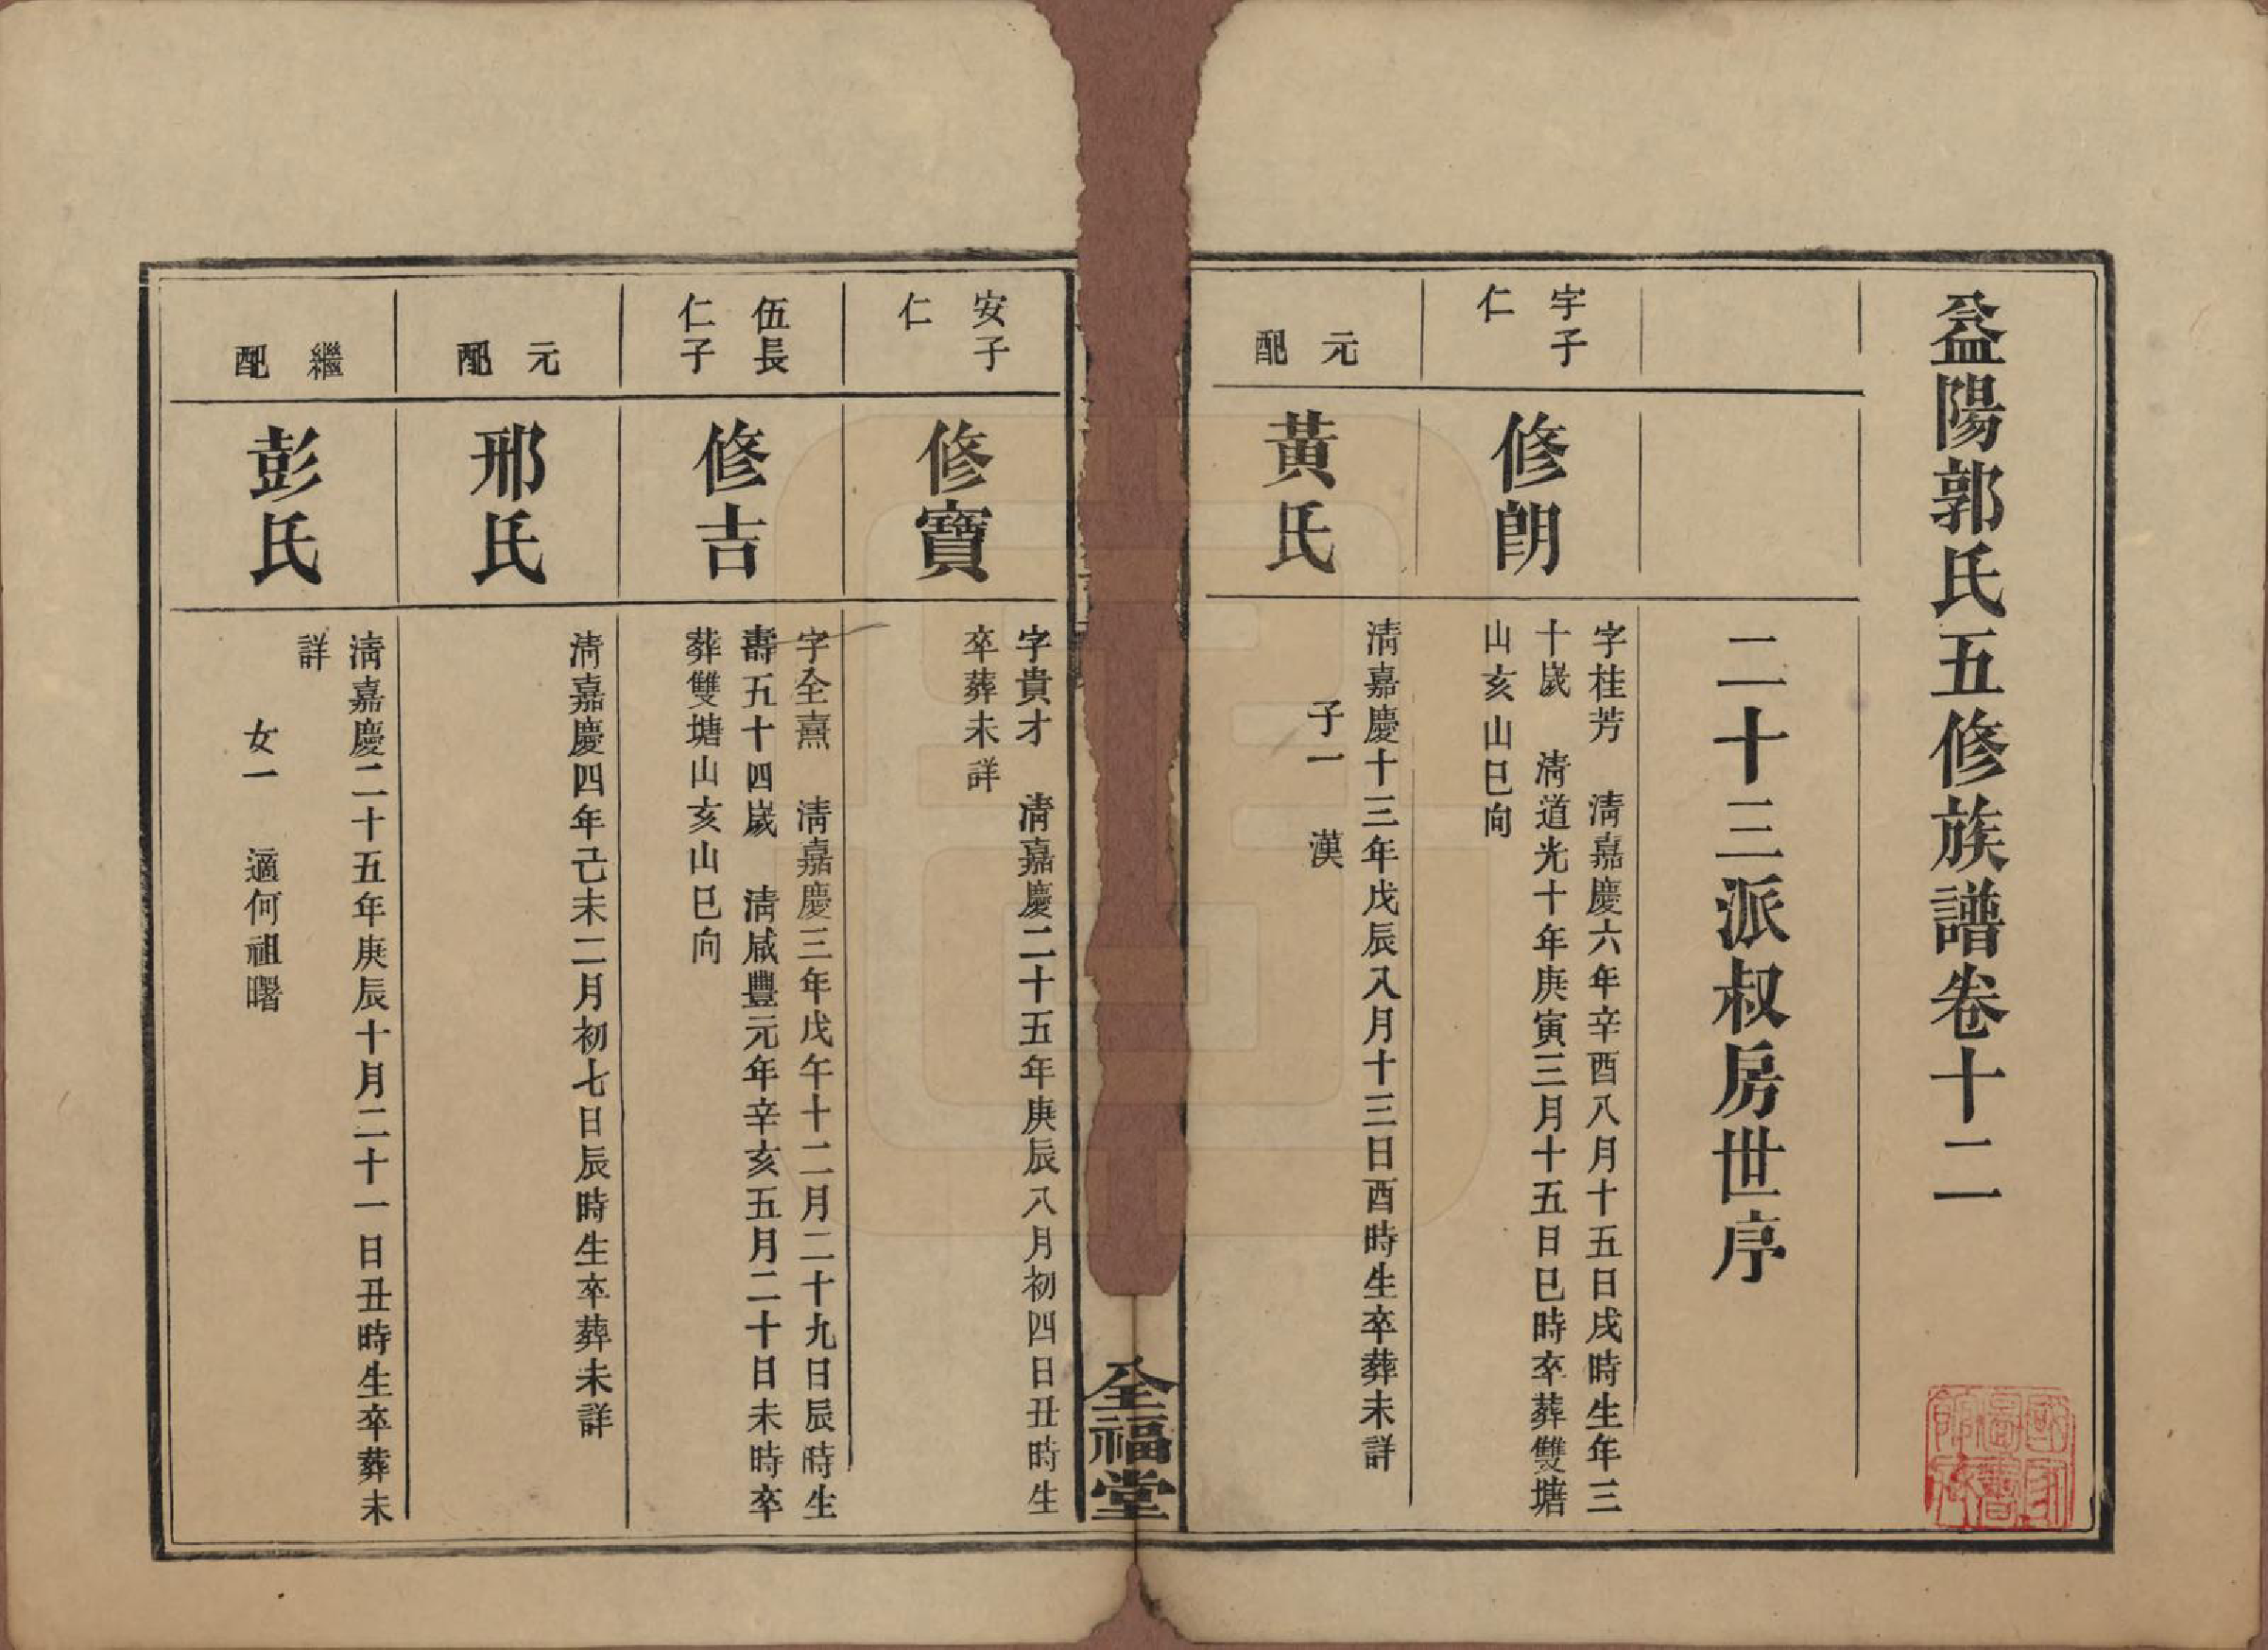 益陽郭氏五修族譜卷十二
二十三派叔房世序
宇子
仁
修朗
字桂芳　清嘉慶六年辛酉八月十五日戌時生年三
十歲　清道光十年庚寅三月十五日巳時卒葬雙塘
山亥山巳向
元
配
黃氏
清嘉慶十三年戊辰八月十三日酉時生卒葬未詳
子一　漢
全福堂
安子
仁
修寶
字貴才　清嘉慶二十五年庚辰八月初四日丑時生
卒葬未詳
伍長
仁子
修吉
字全熹　清嘉慶三年戊午十二月二十九日辰時生
壽五十四歲　清咸豐元年辛亥五月二十日未時卒
葬雙塘山亥山巳向
元
配
邢氏
清嘉慶四年己未二月初七日辰時生卒葬未詳
繼
配
彭氏
清嘉慶二十五年庚辰十月二十一日丑時生卒葬未
詳
女一　適何祖曙